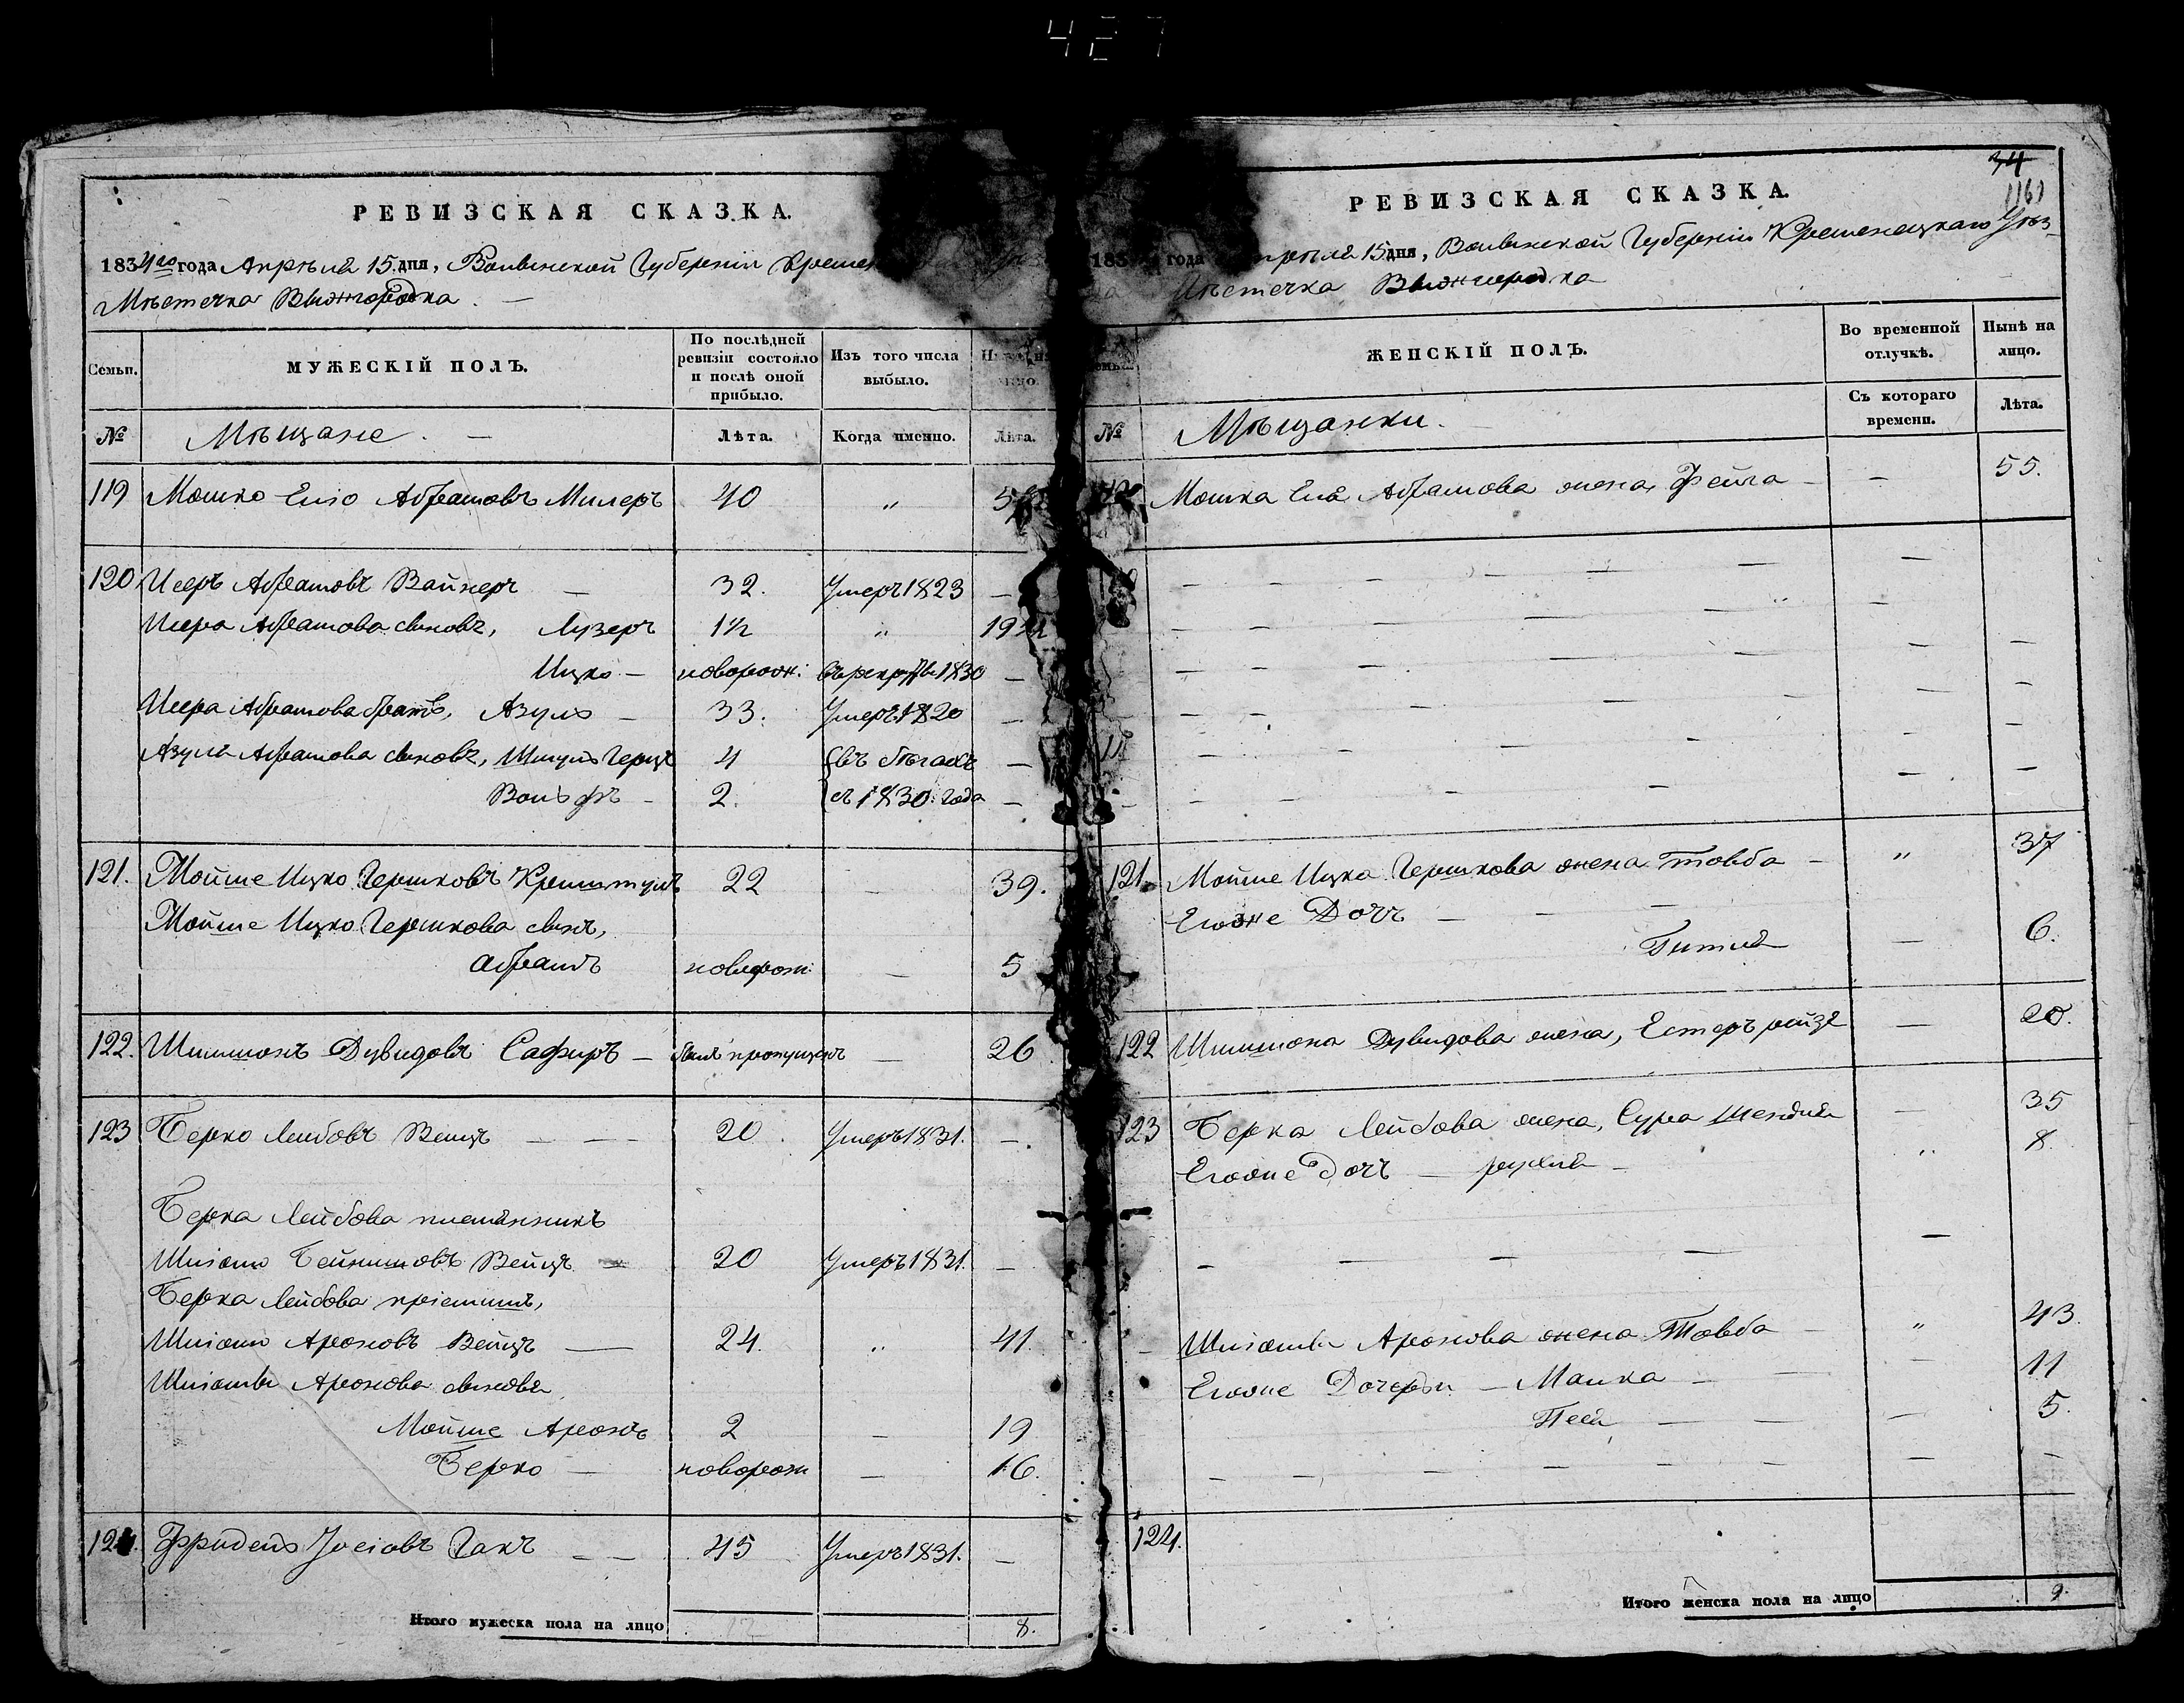 427
РЕВИЗСКАЯ СКАЗКА.
1834го года Апрѣля 15 дня, Волынской Губерніи
Мѣстечка Вижгородка. —
Семьи. МУЖЕСКІЙ ПОЛЪ. По послѣдней ревизіи состояло и послѣ оной прибыло. Изъ того числа выбыло.
№ Мѣщане. — Лѣта. Когда именно. Лѣта.
119 Мошко Елю Абрамовъ Милеръ 40 „
120 Исеръ Абрамовъ Вайнеръ — 32. Умеръ 1823 —
Исера Абрамова сыновъ, Лузеръ 1½ „
Ицко — новорож: въ рекруты 1830 —
Исера Абрамова братъ, Азуль — 33. Умеръ 1820 —
Азуля Абрамова сыновъ, Шмуль Герцъ 4 въ бѣгахъ —
Вольфъ — 2. съ 1830. года —
121. Мойше Ицко Гершковъ 22 — 39.
Мойше Ицко Гершкова сынъ,
Абрамъ новорож: — 5
122. Шимшонъ Дувидовъ Сафиръ — былъ пропущенъ — 26
123 Берко Лейбовъ Вейцъ — — — 20. Умеръ 1831. —
Берка Лейбова племянникъ
Шліомо Бейнишовъ Вейцъ — 20 Умеръ 1831. —
Берка Лейбова пріемышъ,
Шліомо Ароновъ Вейцъ — 24. „ 41.
Шліомы Аронова сыновя
Мойше Аронъ 2 — 19
Берко — новорож — 16.
124. Фридель Іосіовъ Гакъ — — 45 Умеръ 1831. —
Итого мужеска пола на лицо 8.
34
1161
РЕВИЗСКАЯ СКАЗКА.
года 15 дня, Волынской Губерніи Кременецкаго Уѣз-
Мѣстечка Вижгородка
ЖЕНСКІЙ ПОЛЪ. Во временной отлучкѣ. Нынѣ на лицо.
№ Мѣщанки. Съ котораго времени. Лѣта.
Мошка Еля Абрамова жена, Фейга — — 55.
121. Мойше Ицка Гершкова жена Товба — „ 37
Егоже Дочь — — —
Гитля — 6.
122 Шимшона Дувидова жена, Естеръ рейзя — 20.
123 Берка Лейбова жена, Сура Шендля — 35
Егоже дочь — рухля — „ 8.
Шліомы Аронова жена Товба — „ 43.
Егоже Дочерьи — Малка — — 11
Песя — — — 5.
124.
Итого женска пола на лицо 9.